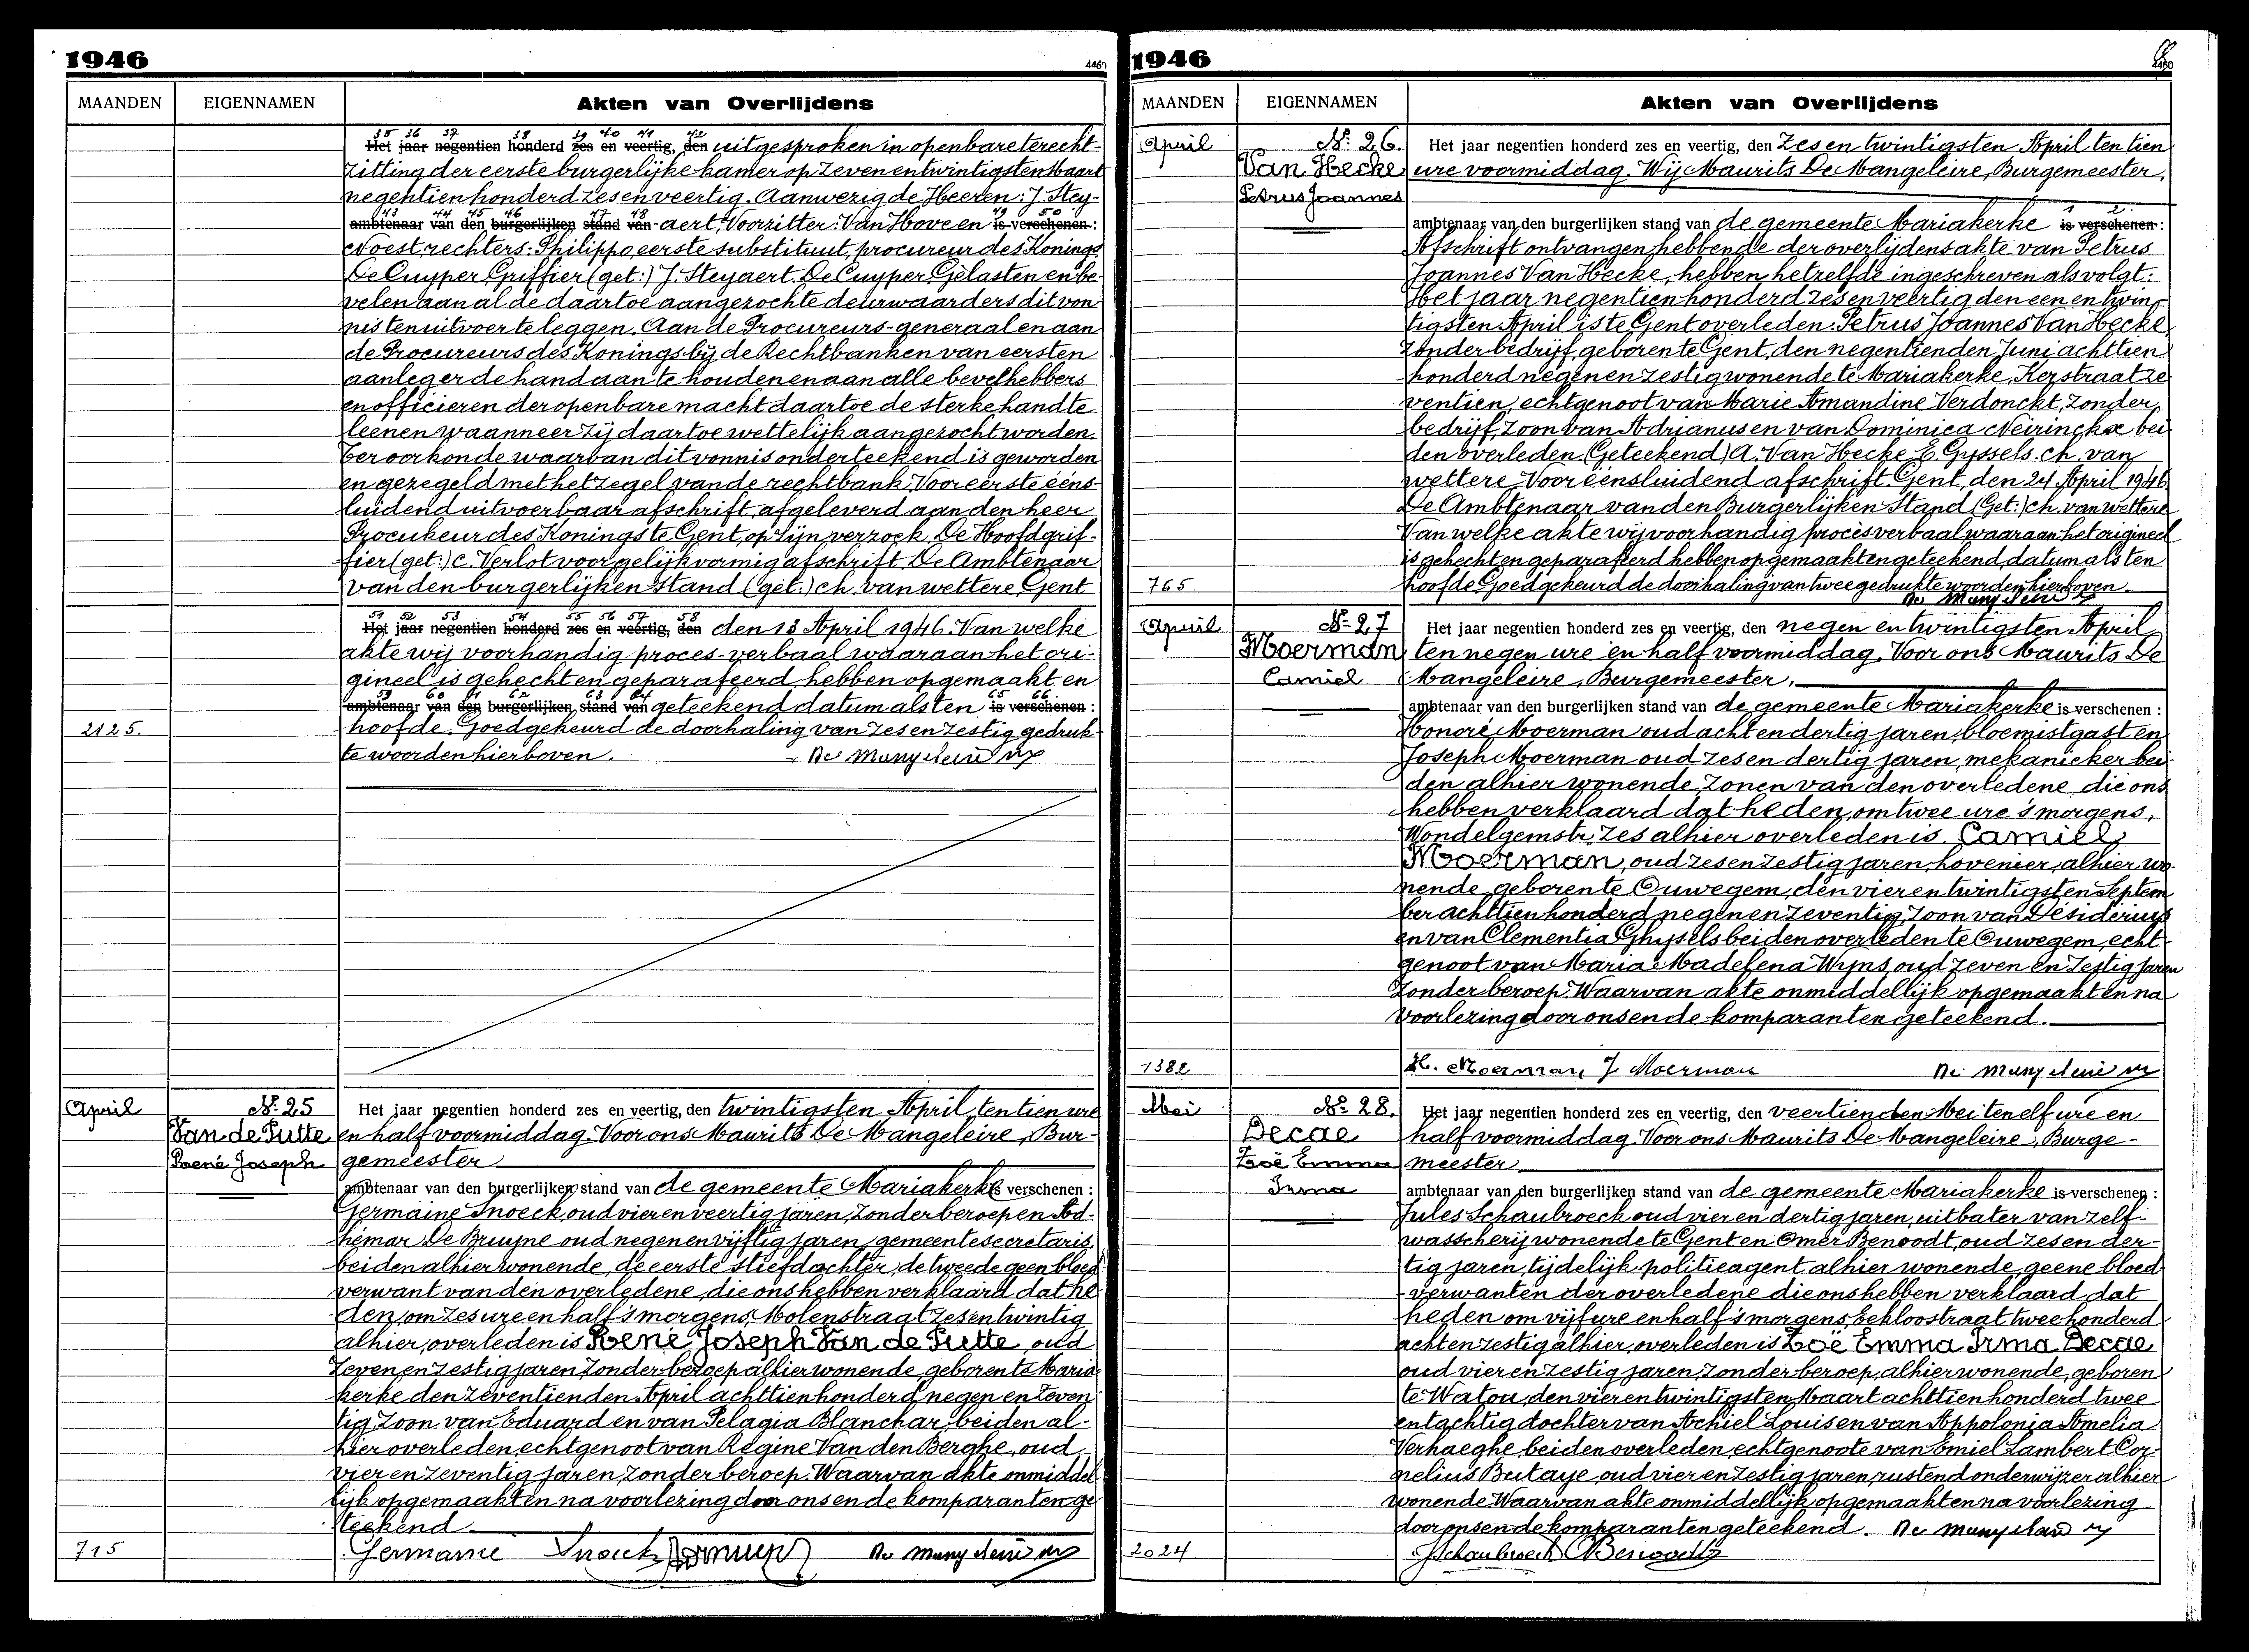 1946
4467
MAANDEN EIGENNAMEN Akten van Overlijdens
35 36 37 38 39 40 41 42
Het jaar negentien honderd zes en veertig, den uitgesproken in openbare terecht-
zitting der eerste burgerlijke kamer op zeven en twintigsten Maart
negentien honderd zes en veertig. Aanwezig de Heeren: J. Stey-
43 44 45 46 47 48 49 50
ambtenaar van den burgerlijken stand van aert, Voorzitter: Van Hove en is verschenen:
Noest, rechters: Philippo, eerste substituut, procureur des Konings,
De Cuyper, Griffier (get:) J. Steyaert. De Cuyper, Gelasten en be-
velen aan al de daartoe aangezochte deurwaarders dit von
nis ten uitvoer te leggen. Aan de Procureurs-generaal en aan
de Procureurs des Konings bij de Rechtbanken van eersten
aanleg er de hand aan te houden en aan alle bevelhebbers
en officieren der openbare macht daartoe de sterke hand te
leenen waanneer zij daartoe wettelijk aangezocht worden.
Ter oorkonde waarvan dit vonnis onderteekend is geworden
en gezegeld met het zegel van de rechtbank: Voor eerste eens-
luidend uitvoerbaar afschrift, afgeleverd aan den heer
Procureur des Konings te Gent, op zijn verzoek. De Hoofdgrif-
fier (get:) C. Verlot voor gelijkvormig afschrift. De Ambtenaar
van den burgerlijken Stand (get:) ch. van wettere, Gent
51 52 53 54 55 56 57 58
Het jaar negentien honderd zes en veertig, den den 13 April 1946. Van welke
akte wij voorhandig proces-verbaal waaraan het ori-
gineel is gehecht en geparafeerd, hebben opgemaakt en
59 60 61 62 63 64 65 66
ambtenaar van den burgerlijken stand van geteekend datum als ten is verschenen:
2125. hoofde. Goedgekeurd de doorhaling van zes en zestig gedruk-
te woorden hierboven. De Mangeleire
April Nr 25 Het jaar negentien honderd zes en veertig, den twintigsten April, ten tien ure
Van de Putte en half voormiddag. Voor ons Maurits De Mangeleire, Bur-
René Joseph gemeester
ambtenaar van den burgerlijken stand van de gemeente Mariakerke is verschenen:
Germaine Snoeck, oud vier en veertig jaren, zonder beroep en Ad-
hémar De Bruyne oud negen en vijftig jaren, gemeentesecretaris,
beiden alhier wonende, de eerste stiefdochter, de tweede geen bloed-
verwant van den overledene, die ons hebben verklaard dat he-
den, om zes ure en half 's morgens, Molenstraat zes en twintig
alhier, overleden is René Joseph Van de Putte, oud
zeven en zestig jaren, zonder beroep, alhier wonende, geboren te Maria
kerke den zeventienden April achttien honderd negen en zeven
tig, zoon van Eduard en van Pelagia Blanchar, beiden al-
hier overleden, echtgenoot van Régine Van den Berghe, oud
vier en zeventig jaren, zonder beroep. Waarvan akte onmiddel
lijk opgemaakt en na voorlezing door ons en de komparanten ge
teekend
715 Germaine Snoeck De Mangeleire
1946
4460
MAANDEN EIGENNAMEN Akten van Overlijdens
April Nr 26. Het jaar negentien honderd zes en veertig, den zes en twintigsten April ten tien
Van Hecke ure voormiddag. Wij Maurits De Mangeleire, Burgemeester,
Petrus Joannes
1 2
ambtenaar van den burgerlijken stand van de gemeente Mariakerke is verschenen:
Afschrift ontvangen hebbende der overlijdensakte van Petrus
Joannes Van Hecke, hebben hetzelfde ingeschreven als volgt:
Het jaar negentien honderd zes en veertig den een en twin-
tigsten April is te Gent overleden: Petrus Joannes Van Hecke,
zonder bedrijf, geboren te Gent, den negentienden Juni achttien
honderd negen en zestig wonende te Mariakerke, Kerstraat ze
ventien, echtgenoot van Marie Amandine Verdonckt, zonder
bedrijf, zoon van Adrianus en van Dominica Neirinckx bei
den overleden. (Geteekend) A. Van Hecke E. Gyssels. ch. van
wettere. Voor eensluidend afschrift. Gent, den 24 April 1946
De Ambtenaar van den Burgerlijken Stand (Get:) ch. van wettere
Van welke akte wij voorhandig procès verbaal waaraan het origineel
is gehecht en geparafeerd hebben opgemaakt en geteekend, datum als ten
765 hoofde. Goedgekeurd de doorhaling van twee gedrukte woorden hierboven.
De Mangeleire
April Nr 27 Het jaar negentien honderd zes en veertig, den negen en twintigsten April
Moerman ten negen ure en half voormiddag. Voor ons Maurits De
Camiel Mangeleire, Burgemeester,
ambtenaar van den burgerlijken stand van de gemeente Mariakerke is verschenen:
Honoré Moerman oud acht en dertig jaren, bloemistgast en
Joseph Moerman oud zes en dertig jaren, mekanieker bei-
den alhier wonende zonen van den overledene die ons
hebben verklaard dat heden, om twee ure 's morgens,
Wondelgemstr, zes alhier overleden is Camiel
Moerman, oud zes en zestig jaren, hovenier, alhier wo-
nende, geboren te Ouwegem, den vier en twintigsten Septem
ber achttien honderd negen en zeventig, zoon van Désiderius
en van Clementia Ghysels beiden overleden te Ouwegem, echt-
genoot van Maria Madelena Wyns, oud zeven en zestig jaren
zonder beroep. Waarvan akte onmiddellijk opgemaakt en na
voorlezing door ons en de komparanten geteekend.
1382 H. Moerman J. Moerman De Mangeleire
Mei Nr 28. Het jaar negentien honderd zes en veertig, den veertienden Mei ten elf ure en
Decae half voormiddag. Voor ons Maurits De Mangeleire, Burge-
Zoë Emma meester
Irma ambtenaar van den burgerlijken stand van de gemeente Mariakerke is verschenen:
Jules Schaubroeck, oud vier en dertig jaren, uitbater van zelf-
wasscherij wonende te Gent en Omer Benoodt, oud zes en der-
tig jaren, tijdelijk politieagent alhier wonende, geene bloed
verwanten der overledene die ons hebben verklaard dat
heden om vijf ure en half 's morgens, Eekloostraat twee honderd
acht en zestig alhier, overleden is Zoë Emma Irma Decae
oud vier en zestig jaren, zonder beroep, alhier wonende, geboren
te Watou, den vier en twintigsten Maart achttien honderd twee
en tachtig dochter van Achiel Louis en van Appolonia Amelia
Verhaeghe, beiden overleden, echtgenoote van Emiel Lambert Cor-
nelius Butaye, oud vier en zestig jaren, rustend onderwijzer alhier
wonende. Waarvan akte onmiddellijk opgemaakt en na voorlezing
door ons en de komparanten geteekend. De Mangeleire
2024 J Schaubroeck Benoodt